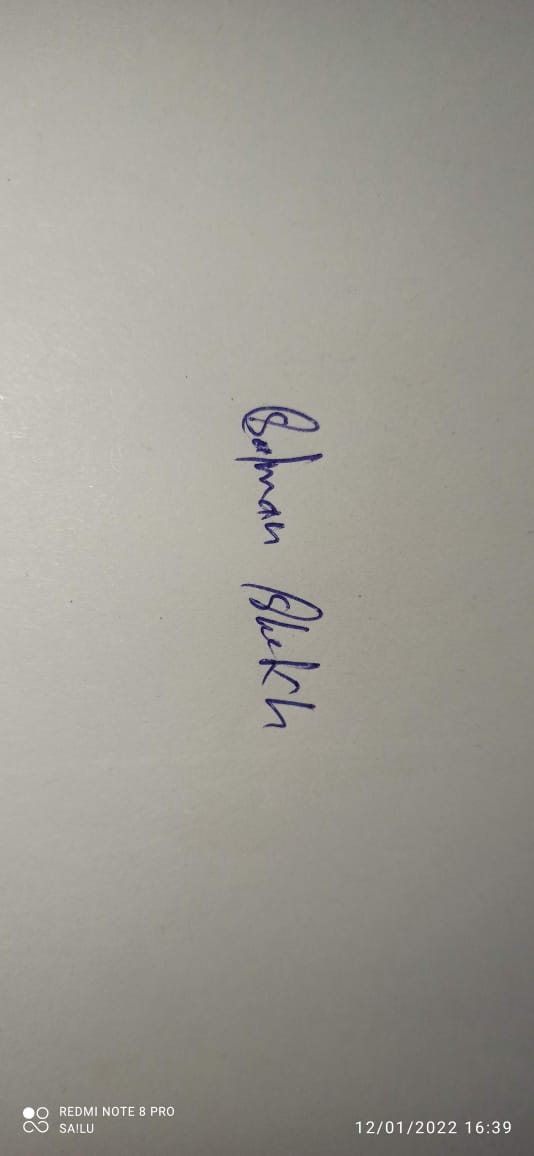 Salman Shekh
REDMI NOTE 8 PRO
SA!LU
12/01/2022 16:39